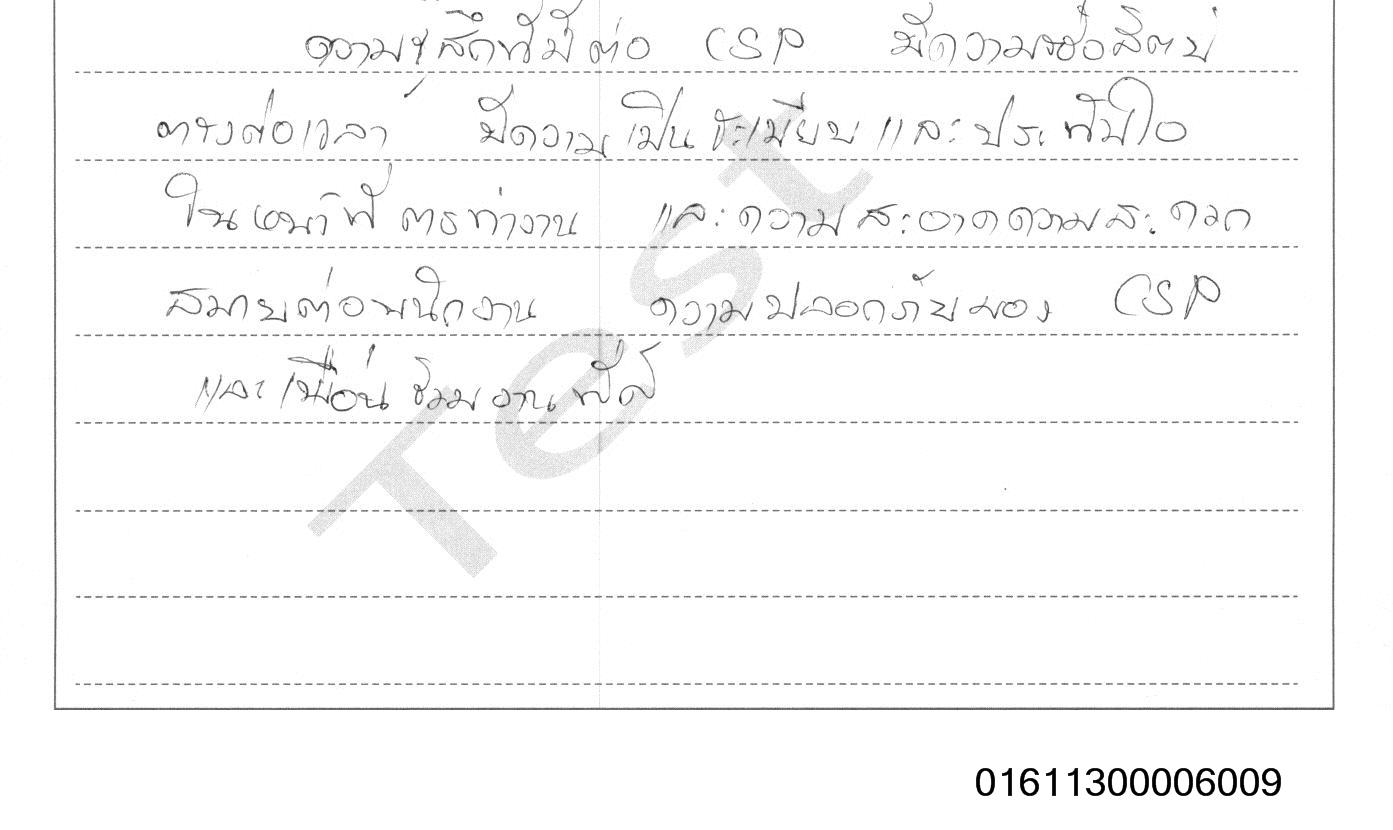 ความรู้สึกที่มีต่อ CSP มีความซื่อสัตย์
ตรงต่อเวลา มีความเป็นระเบียบ และประทับใจ
ในหน้าที่การทำงาน และความสะอาดความสะดวก
สบายต่อพนักงาน ความปลอดภัยของ CSP
และเพื่อนร่วมงานที่ดี
Test
01611300006009